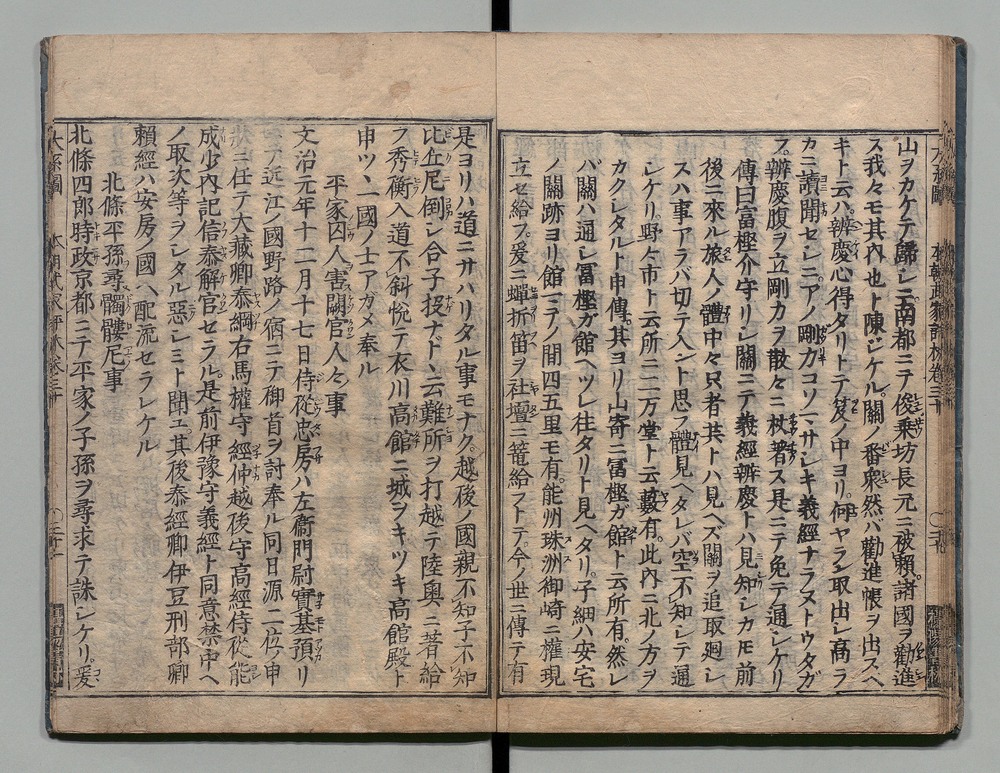 山ヲカケテ歸レニ南都ニテ俊乗坊長元ニ被賴諸國ヲ勸進
ス我々モ其内也ト陳ジケル。關ノ番衆然バ勸進帳ヲ出スベ
キト云ハ辨慶心得タリトテ笈ノ中ヨリ何ヤラン取出シ高ラ
カニ讀聞セシニアノ剛力コソマサシキ義經ナラストウタガ
フ。辨慶腹ヲ立剛力ヲ散々ニ杖著ス是ニテ免テ通シケリ
傳曰富樫介守リシ關ニテ義經辨慶トハ見知シカモ前
後ニ來ル旅人ノ體中々只者共トハ見ヘズ關ヲ追取廻シ
スハ事アラバ切テ入ント思フ體見ヘタレバ空不知シテ通
シケリ。野々市ト云所ニ二万堂ト云藪有。此内ニ北ノ方ヲ
カクシタルト申傳。其ヨリ山寄ニ富樫ガ館ト云所有。然レ
バ關ハ通シ冨樫ガ館ヘツレ往タリト見ヘタリ。子細ハ安宅
ノ關跡ヨリ館ニテノ間四五里モ有。能州珠洲御崎ニ權現
立セ給フ。爰ニ蟬折笛ヲ社壇ニ籠給フトテ。今ノ世ニ傳テ有
是ヨリハ道ニサハリタル事モナク。越後ノ國親不知子不知
比丘尼倒シ合子投ナドト云難所ヲ打越テ陸奥ニ著給
フ秀衡入道不斜悅テ衣川高館ニ城ヲキツキ高館殿ト
申ツヽ一國ノ士アガメ奉ル
平家囚人害闕官人々事
文治元年十二月十七日侍從忠房ハ左衞門尉實基預リ
近江ノ國野路ノ宿ニテ御首ヲ討奉ル同日源二位ノ申
ニ任テ大藏卿泰綱右馬權守經仲越後守高經侍從能
成少内記信泰解官セラル。是前伊豫守義經ト同意禁中ヘ
ノ取次等ヲシタル惡シミト聞エ。其後泰經卿伊豆刑部卿
賴經ハ安房ノ國ヘ配流セラレケル
北條平孫尋髑髏尼事
北條四郎時政京都ニテ平家ノ子孫ヲ尋求テ誅シケリ。爰